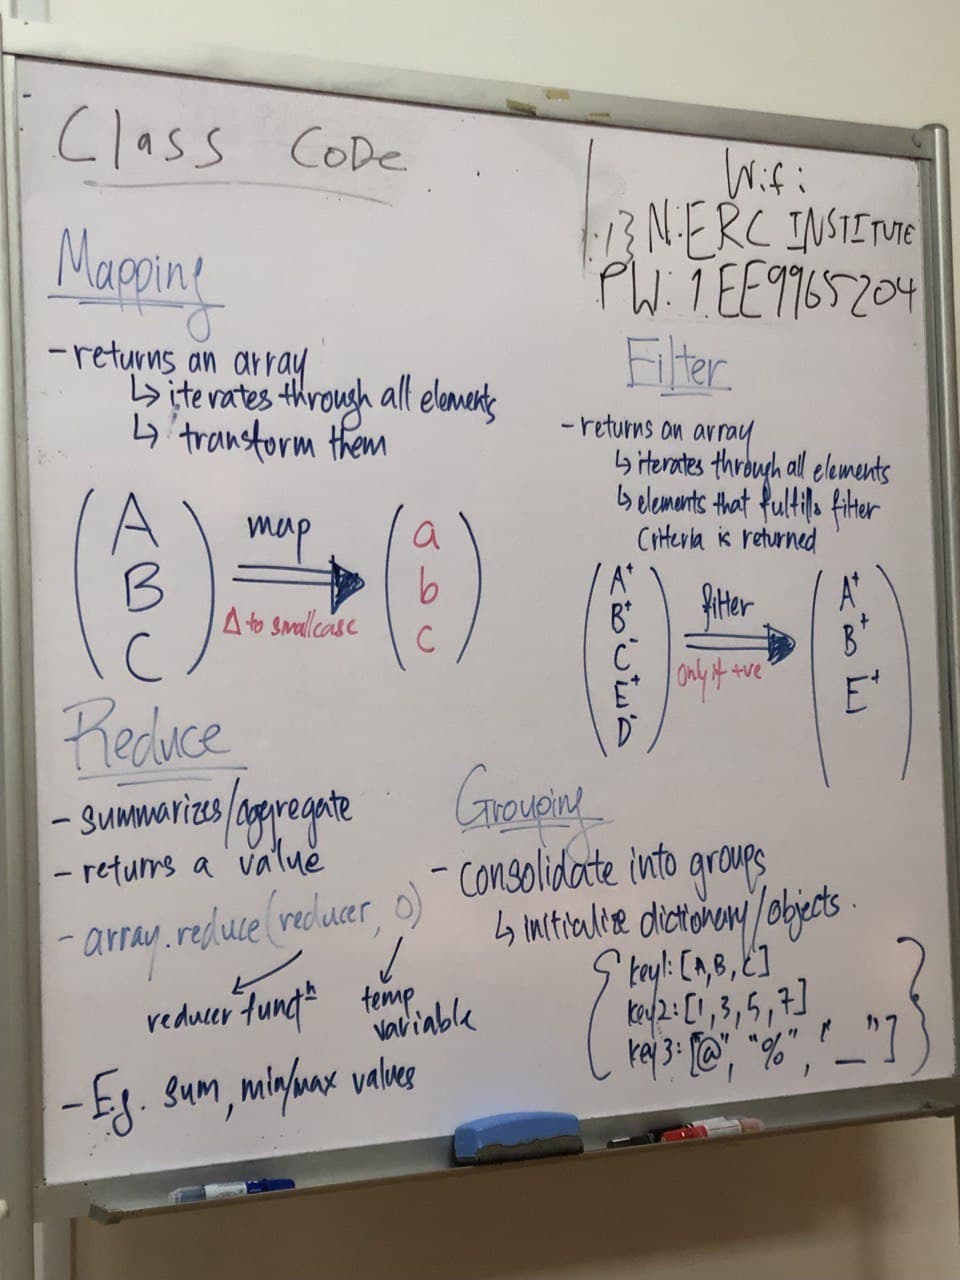 Class Code
Wifi
N:ERC INSTITUTE
PW: 1EE9965204
Mapping
- returns an array
↳ iterates through all elements
↳ transform them
A
B
C
map
Δ to smallcase
a
b
c
Filter
- returns an array
↳ iterates through all elements
↳ elements that fulfills filter
Criteria is returned
A+
B+
C-
E+
D-
filter
only if +ve
A+
B+
E+
Reduce
- summarizes/aggregate
- returns a value
- array.reduce(reducer, 0)
reducer functn
temp
variable
- E.g. sum, min/max values
Grouping
- consolidate into groups
↳ initialize dictionary/objects.
{ key1: [A, B, C]
key2: [1, 3, 5, 7]
key3: ["@", "%", "_"] }